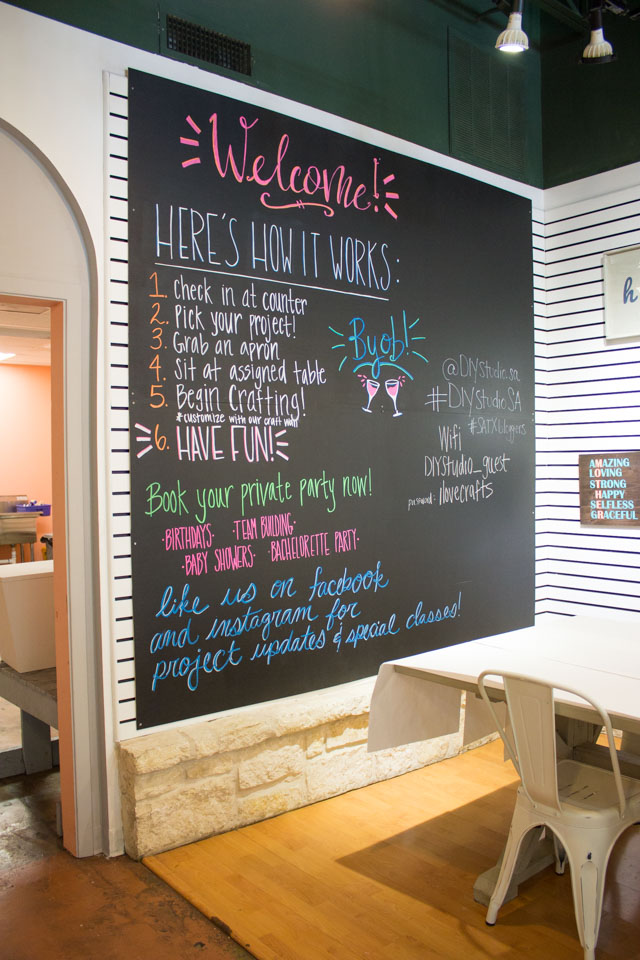 Welcome!
HERE'S HOW IT WORKS:
1. Check in at counter
2. Pick your project!
3. Grab an apron
4. Sit at assigned table
5. Begin Crafting!
*customize with our craft wall!
6. HAVE FUN!
Byob!
@DIYstudio.sa
#DIYstudioSA
#SATXbloggers
Wifi
DIYStudio_guest
password: ilovecrafts
Book your private party now!
·BIRTHDAYS· TEAM BUILDING·
·BABY SHOWERS· ·BACHELORETTE PARTY·
like us on facebook
and instagram for
project updates & special classes!
h
AMAZING
LOVING
STRONG
HAPPY
SELFLESS
GRACEFUL